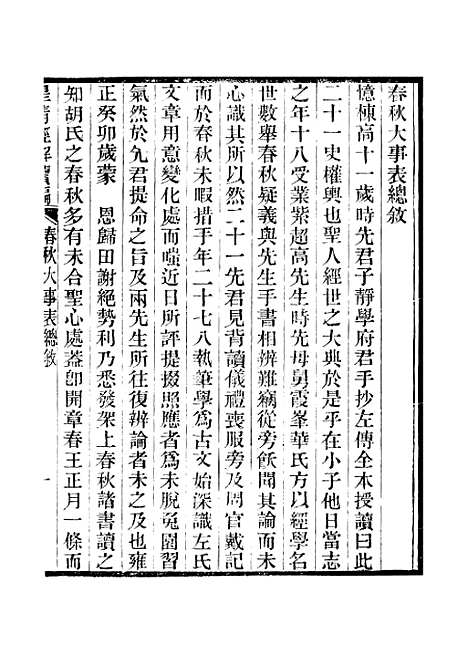 春秋大事表總敘
憶棟高十一歲時先君子靜學府君手抄左傳全本授讀曰此
二十一史權輿也聖人經世之大典於是乎在小子他日當志
之年十八受業紫超高先生時先母舅霞峯華氏方以經學名
世數舉春秋疑義與先生手書相辨難竊從旁飫聞其論而未
心識其所以然二十一先君見背讀儀禮喪服旁及周官戴記
而於春秋未暇措手年二十七八執筆學爲古文始深識左氏
文章用意變化處而嗤近日所評提掇照應者爲未脫兎園習
氣然於先君提命之旨及兩先生所往復辨論者未之及也雍
正癸卯歲蒙　恩歸田謝絕勢利乃悉發架上春秋諸書讀之
知胡氏之春秋多有未合聖心處蓋卽開章春王正月一條而
皇淸經解續編　春秋大事表總敘　一